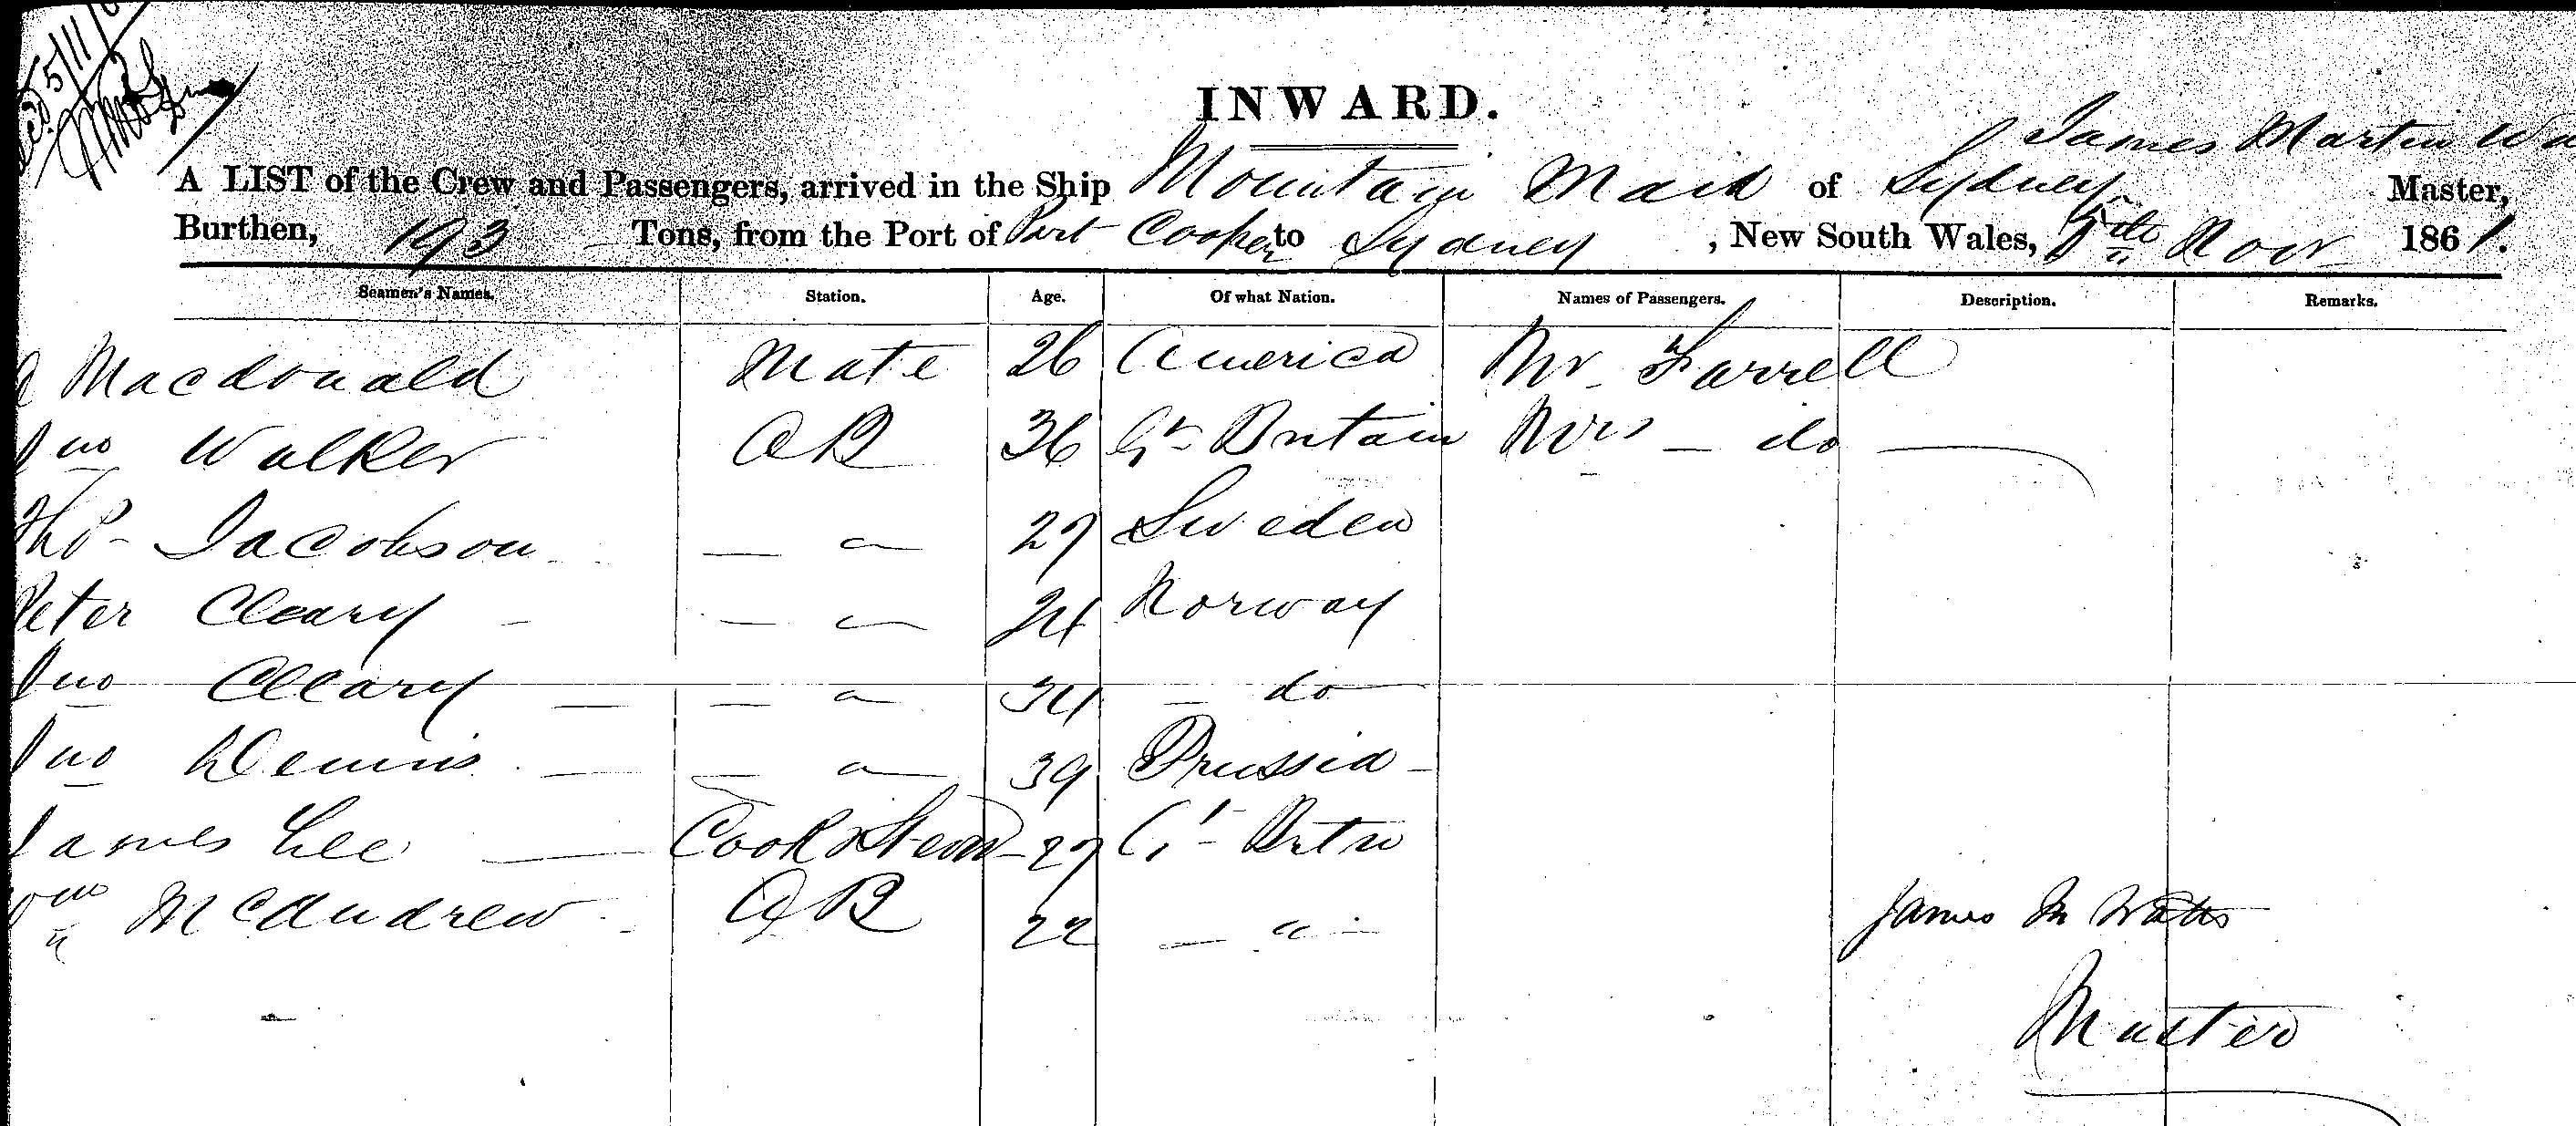 5/11/6
INWARD.
James Martin Wa
A LIST of the Crew and Passengers, arrived in the Ship Mountain Maid of Sydney Master,
Burthen, 193 Tons, from the Port of Port Cooper to Sydney, New South Wales, 5th Novr 1861.
Seamen's Names. Station. Age. Of what Nation. Names of Passengers. Description. Remarks.
Macdonald Mate 26 America Mr Farrell
Jno Walker AB 36 Gt Britain Mrs — do —
Thos Jacobson — " — 27 Sweden
Peter Cleary — " — 24 Norway
Jno Cleary — " — 34 — do —
Jno Dennis — " — 39 Prussia
James Lee Cook & Stewd 27 Gt Britn
Wm McAndrew AB 22 — " —
James M Watts
Master